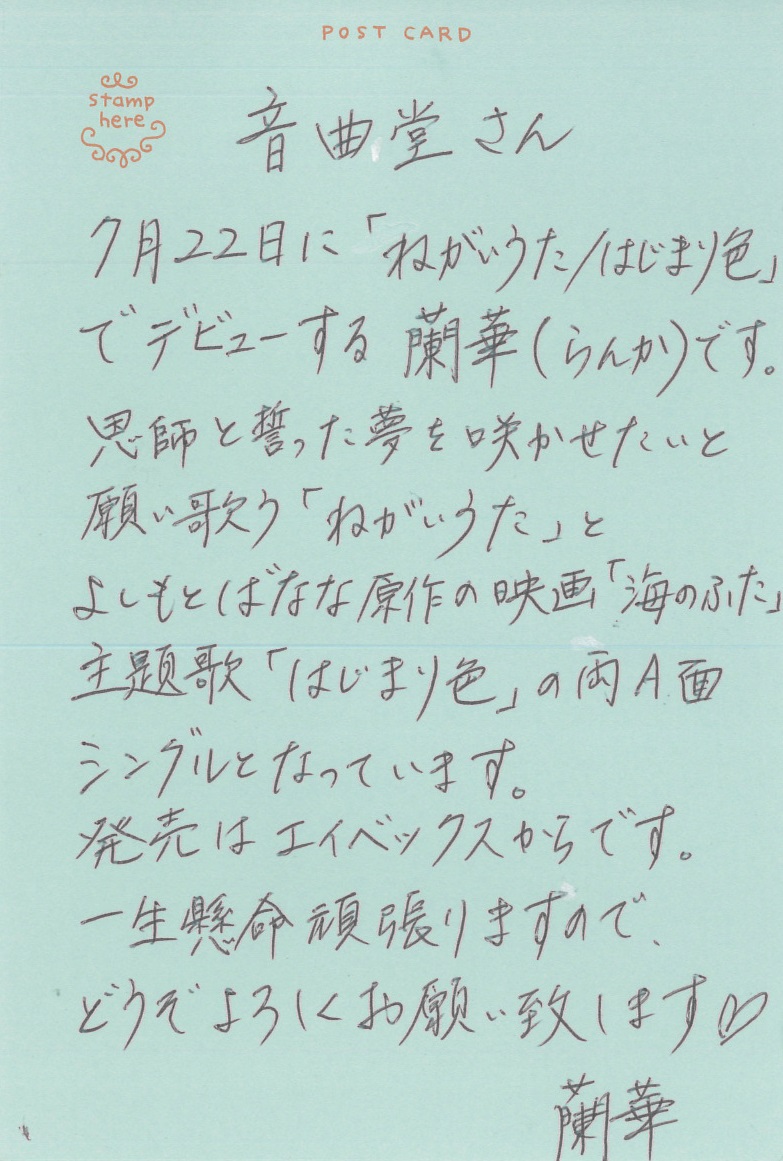 POST CARD
stamp
here
音曲堂さん
7月22日に「ねがいうた/はじまり色」
でデビューする 蘭華(らんか)です。
恩師と誓った夢を咲かせたいと
願い歌う「ねがいうた」と
よしもとばなな原作の映画「海のふた」
主題歌「はじまり色」の両A面
シングルとなっています。
発売はエイベックスからです。
一生懸命頑張りますので、
どうぞよろしくお願い致します♡
蘭華